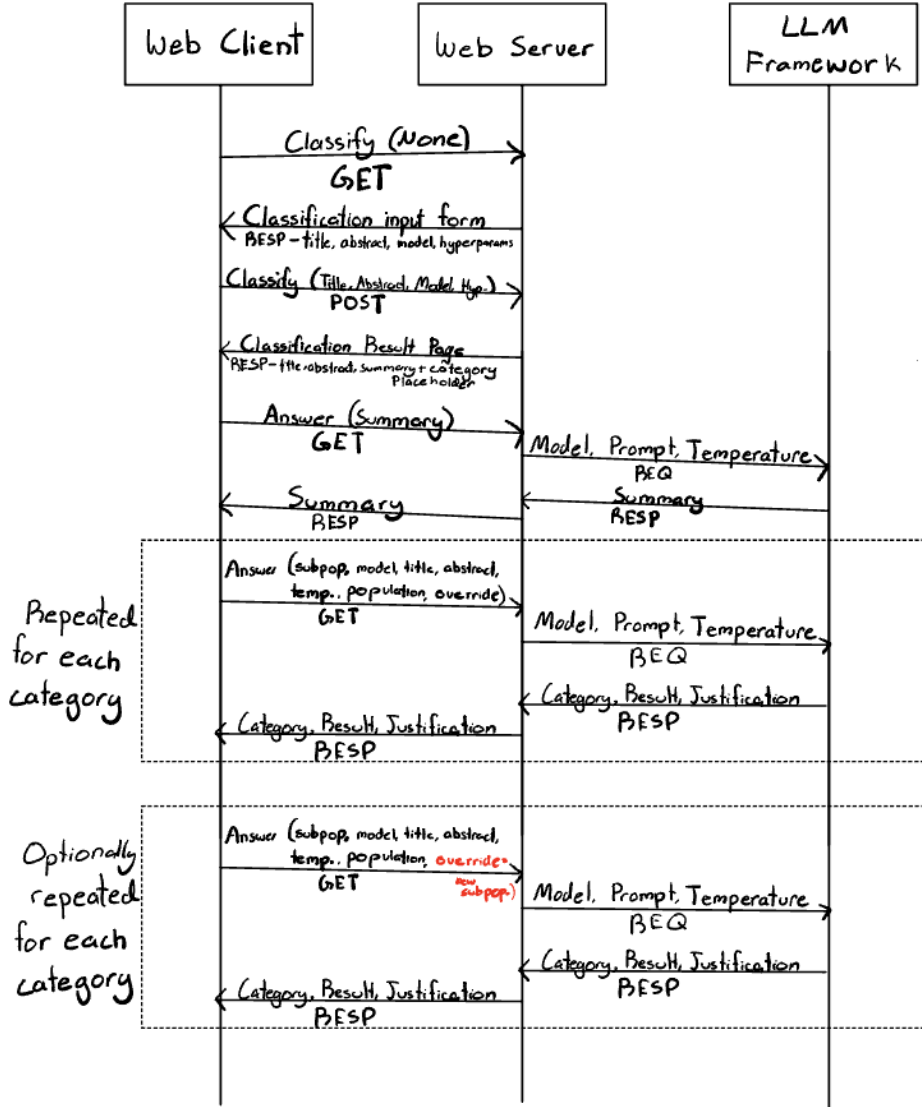 Web Client
Web Server
LLM
Framework
Classify (None)
GET
Classification input form
RESP - title, abstract, model, hyperparams
Classify (Title, Abstract, Model, Hyp.)
POST
Classification Result Page
RESP - title, abstract, summary + category
Placeholder
Answer (Summary)
GET
Model, Prompt, Temperature
REQ
Summary
RESP
Summary
RESP
Repeated
for each
category
Answer (subpop, model, title, abstract,
temp., population, override)
GET
Model, Prompt, Temperature
REQ
Category, Result, Justification
RESP
Category, Result, Justification
RESP
Optionally
repeated
for each
category
Answer (subpop, model, title, abstract,
temp., population, override=
new
subpop.)
GET
Model, Prompt, Temperature
REQ
Category, Result, Justification
RESP
Category, Result, Justification
RESP